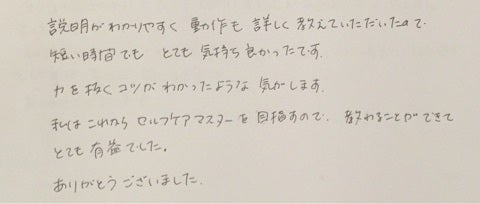 説明がわかりやすく 動作も 詳しく 教えていただいたので、
短い時間でも とても 気持ち良かったです。
力を抜く コツが わかったような 気がします。
私は これから セルフケアマスターを 目指すので、教わることができて
とても 有益でした。
ありがとうございました。